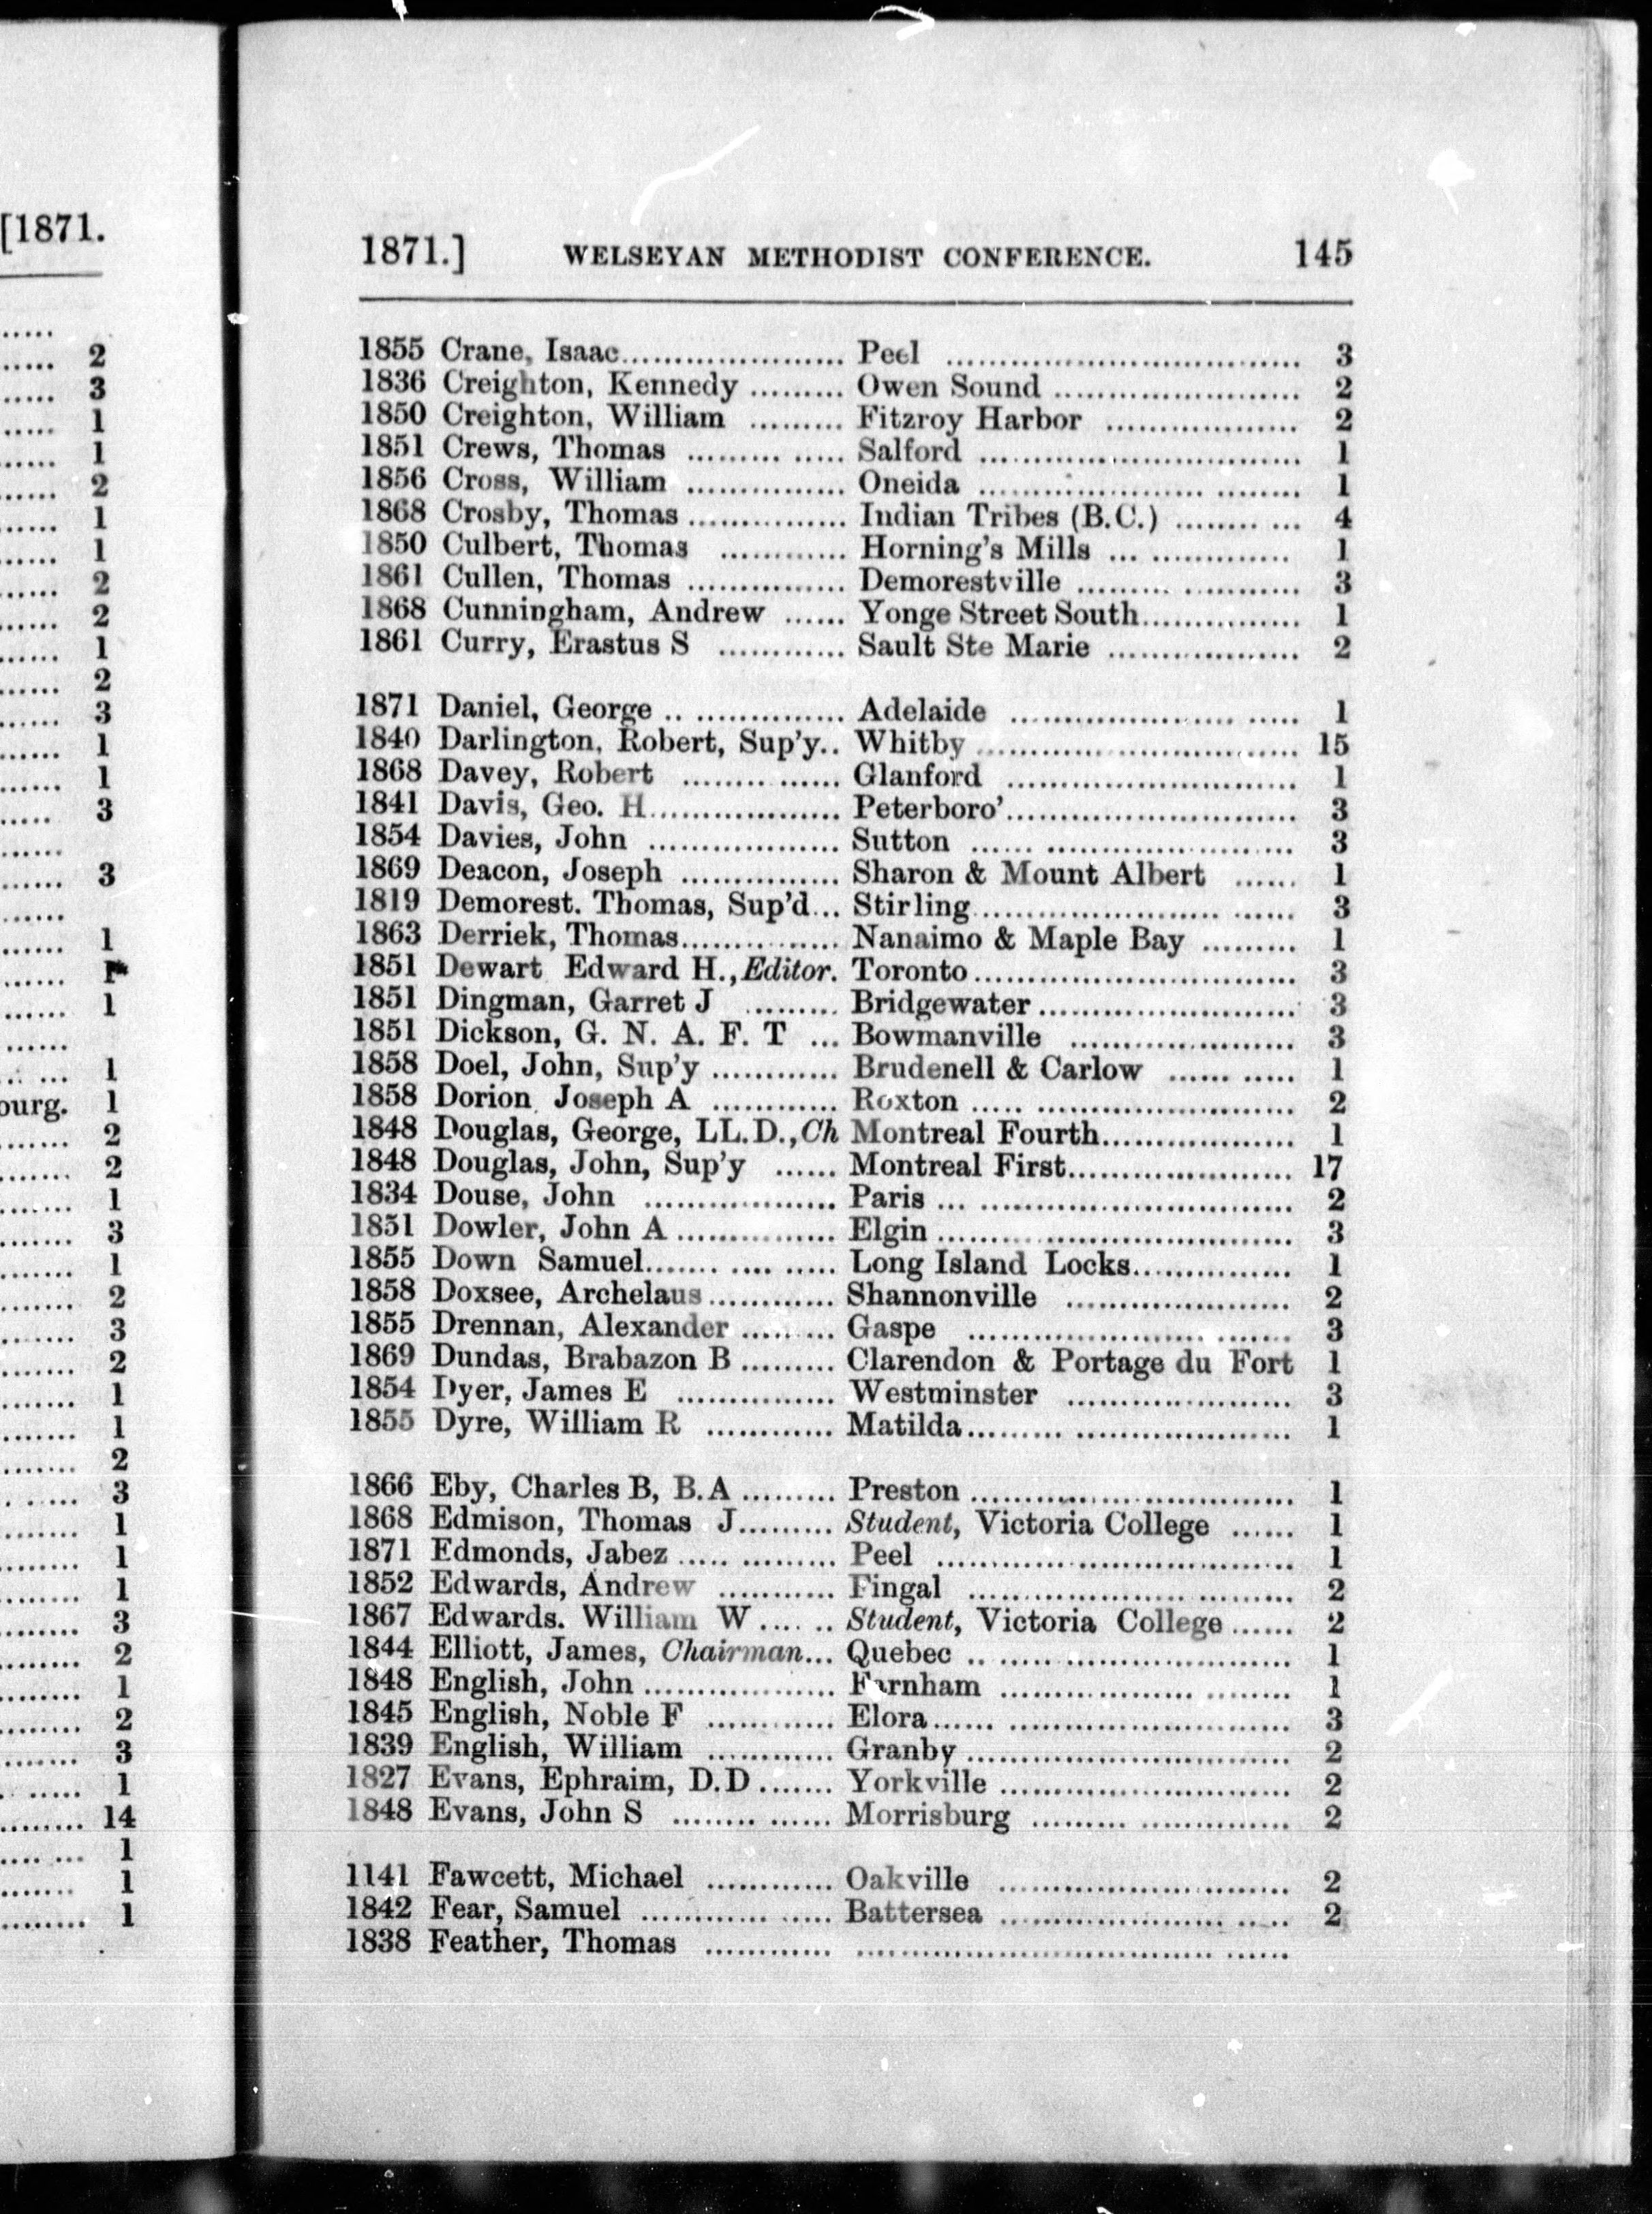 [1871.
2
3
1
1
2
1
1
2
2
1
2
3
1
1
3
3
1
1
1
1
ourg. 1
2
2
1
3
1
2
3
2
1
1
2
3
1
1
1
3
2
1
2
3
1
14
1
1
1
1871.] WELSEYAN METHODIST CONFERENCE. 145
1855 Crane, Isaac..................... Peel .................................. 3
1836 Creighton, Kennedy ......... Owen Sound ........................ 2
1850 Creighton, William ......... Fitzroy Harbor .................. 2
1851 Crews, Thomas ......... ..... Salford ............................... 1
1856 Cross, William ............... Oneida ...................... ........ 1
1868 Crosby, Thomas ............... Indian Tribes (B.C.) ........ ... 4
1850 Culbert, Thomas ............ Horning's Mills ... ............. 1
1861 Cullen, Thomas ............... Demorestville ......... ........... 3
1868 Cunningham, Andrew ...... Yonge Street South............... 1
1861 Curry, Erastus S ............ Sault Ste Marie .................. 2
1871 Daniel, George .. .............. Adelaide ...................... ..... 1
1840 Darlington, Robert, Sup'y.. Whitby ............................... 15
1868 Davey, Robert ......... ...... Glanford ............................ 1
1841 Davis, Geo. H................... Peterboro'............................ 3
1854 Davies, John .................. Sutton ...... ........................ 3
1869 Deacon, Joseph ............... Sharon & Mount Albert ...... 1
1819 Demorest. Thomas, Sup'd... Stirling........................ ...... 3
1863 Derriek, Thomas............... Nanaimo & Maple Bay ......... 1
1851 Dewart Edward H., Editor. Toronto ............................... 3
1851 Dingman, Garret J ......... Bridgewater ......................... 3
1851 Dickson, G. N. A. F. T ... Bowmanville ..................... 3
1858 Doel, John, Sup'y ............ Brudenell & Carlow ...... ..... 1
1858 Dorion Joseph A ............ Roxton ..... ......................... 2
1848 Douglas, George, LL.D., Ch Montreal Fourth................... 1
1848 Douglas, John, Sup'y ...... Montreal First...................... 17
1834 Douse, John .................. Paris ... .............................. 2
1851 Dowler, John A ............... Elgin .................................. 3
1855 Down Samuel....... .... ..... Long Island Locks............... 1
1858 Doxsee, Archelaus ............ Shannonville ..................... 2
1855 Drennan, Alexander ......... Gaspe ....................... ....... 3
1869 Dundas, Brabazon B ......... Clarendon & Portage du Fort 1
1854 Dyer, James E ............... Westminster ..................... 3
1855 Dyre, William R ............ Matilda......... ..................... 1
1866 Eby, Charles B, B.A ......... Preston ............................... 1
1868 Edmison, Thomas J......... Student, Victoria College ...... 1
1871 Edmonds, Jabez ..... ......... Peel .................................. 1
1852 Edwards, Andrew ........... Fingal ...................... ......... 2
1867 Edwards. William W ...... .. Student, Victoria College ...... 2
1844 Elliott, James, Chairman... Quebec .. ..... ...................... 1
1848 English, John .................. Farnham ................... ........ 1
1845 English, Noble F ............ Elora...... ........................... 3
1839 English, William ............ Granby ............................... 2
1827 Evans, Ephraim, D.D ....... Yorkville ............................ 2
1848 Evans, John S ........ ...... Morrisburg ......... .............. 2
1141 Fawcett, Michael ............ Oakville ............................ 2
1842 Fear, Samuel ............ ..... Battersea ...................... ..... 2
1838 Feather, Thomas ............ .................................. ......